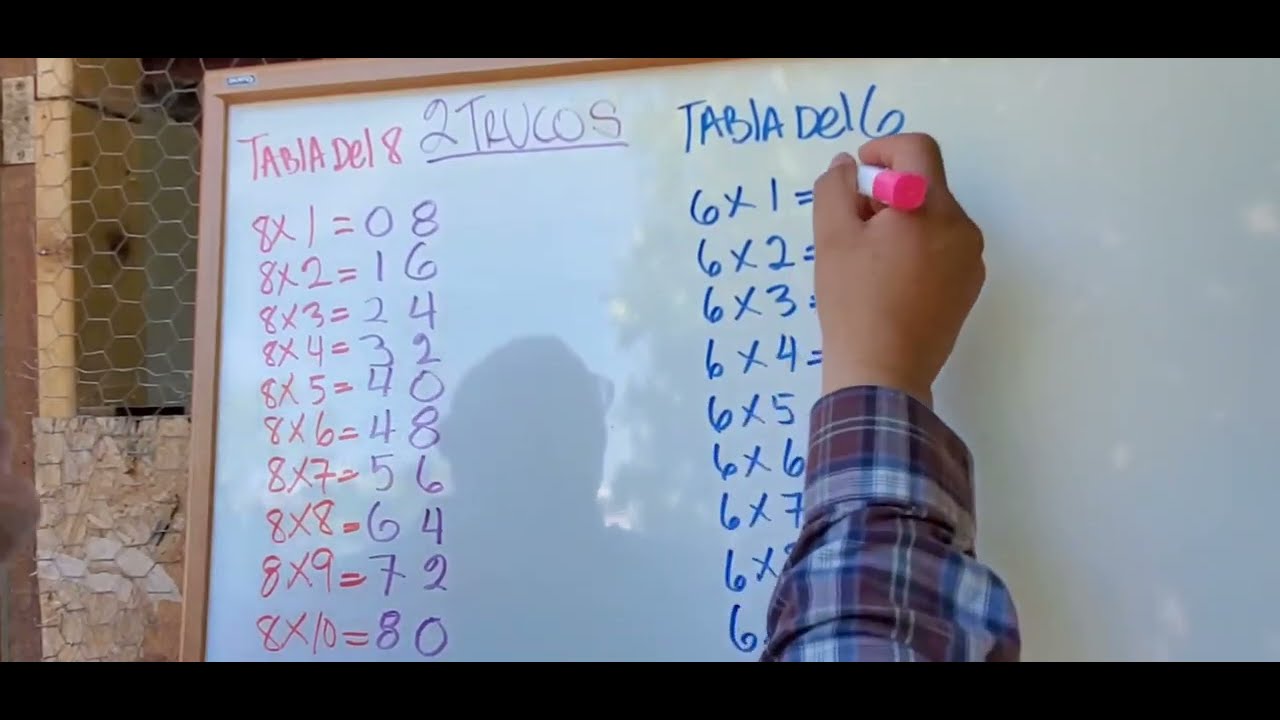 2 TRUCOS
TABLA Del 8
8x1=08
8x2=16
8x3=24
8x4=32
8x5=40
8x6=48
8x7=56
8x8=64
8x9=72
8x10=80
TABLA Del 6
6x1=
6x2=
6x3=
6x4=
6x5
6x6
6x7
6x
6